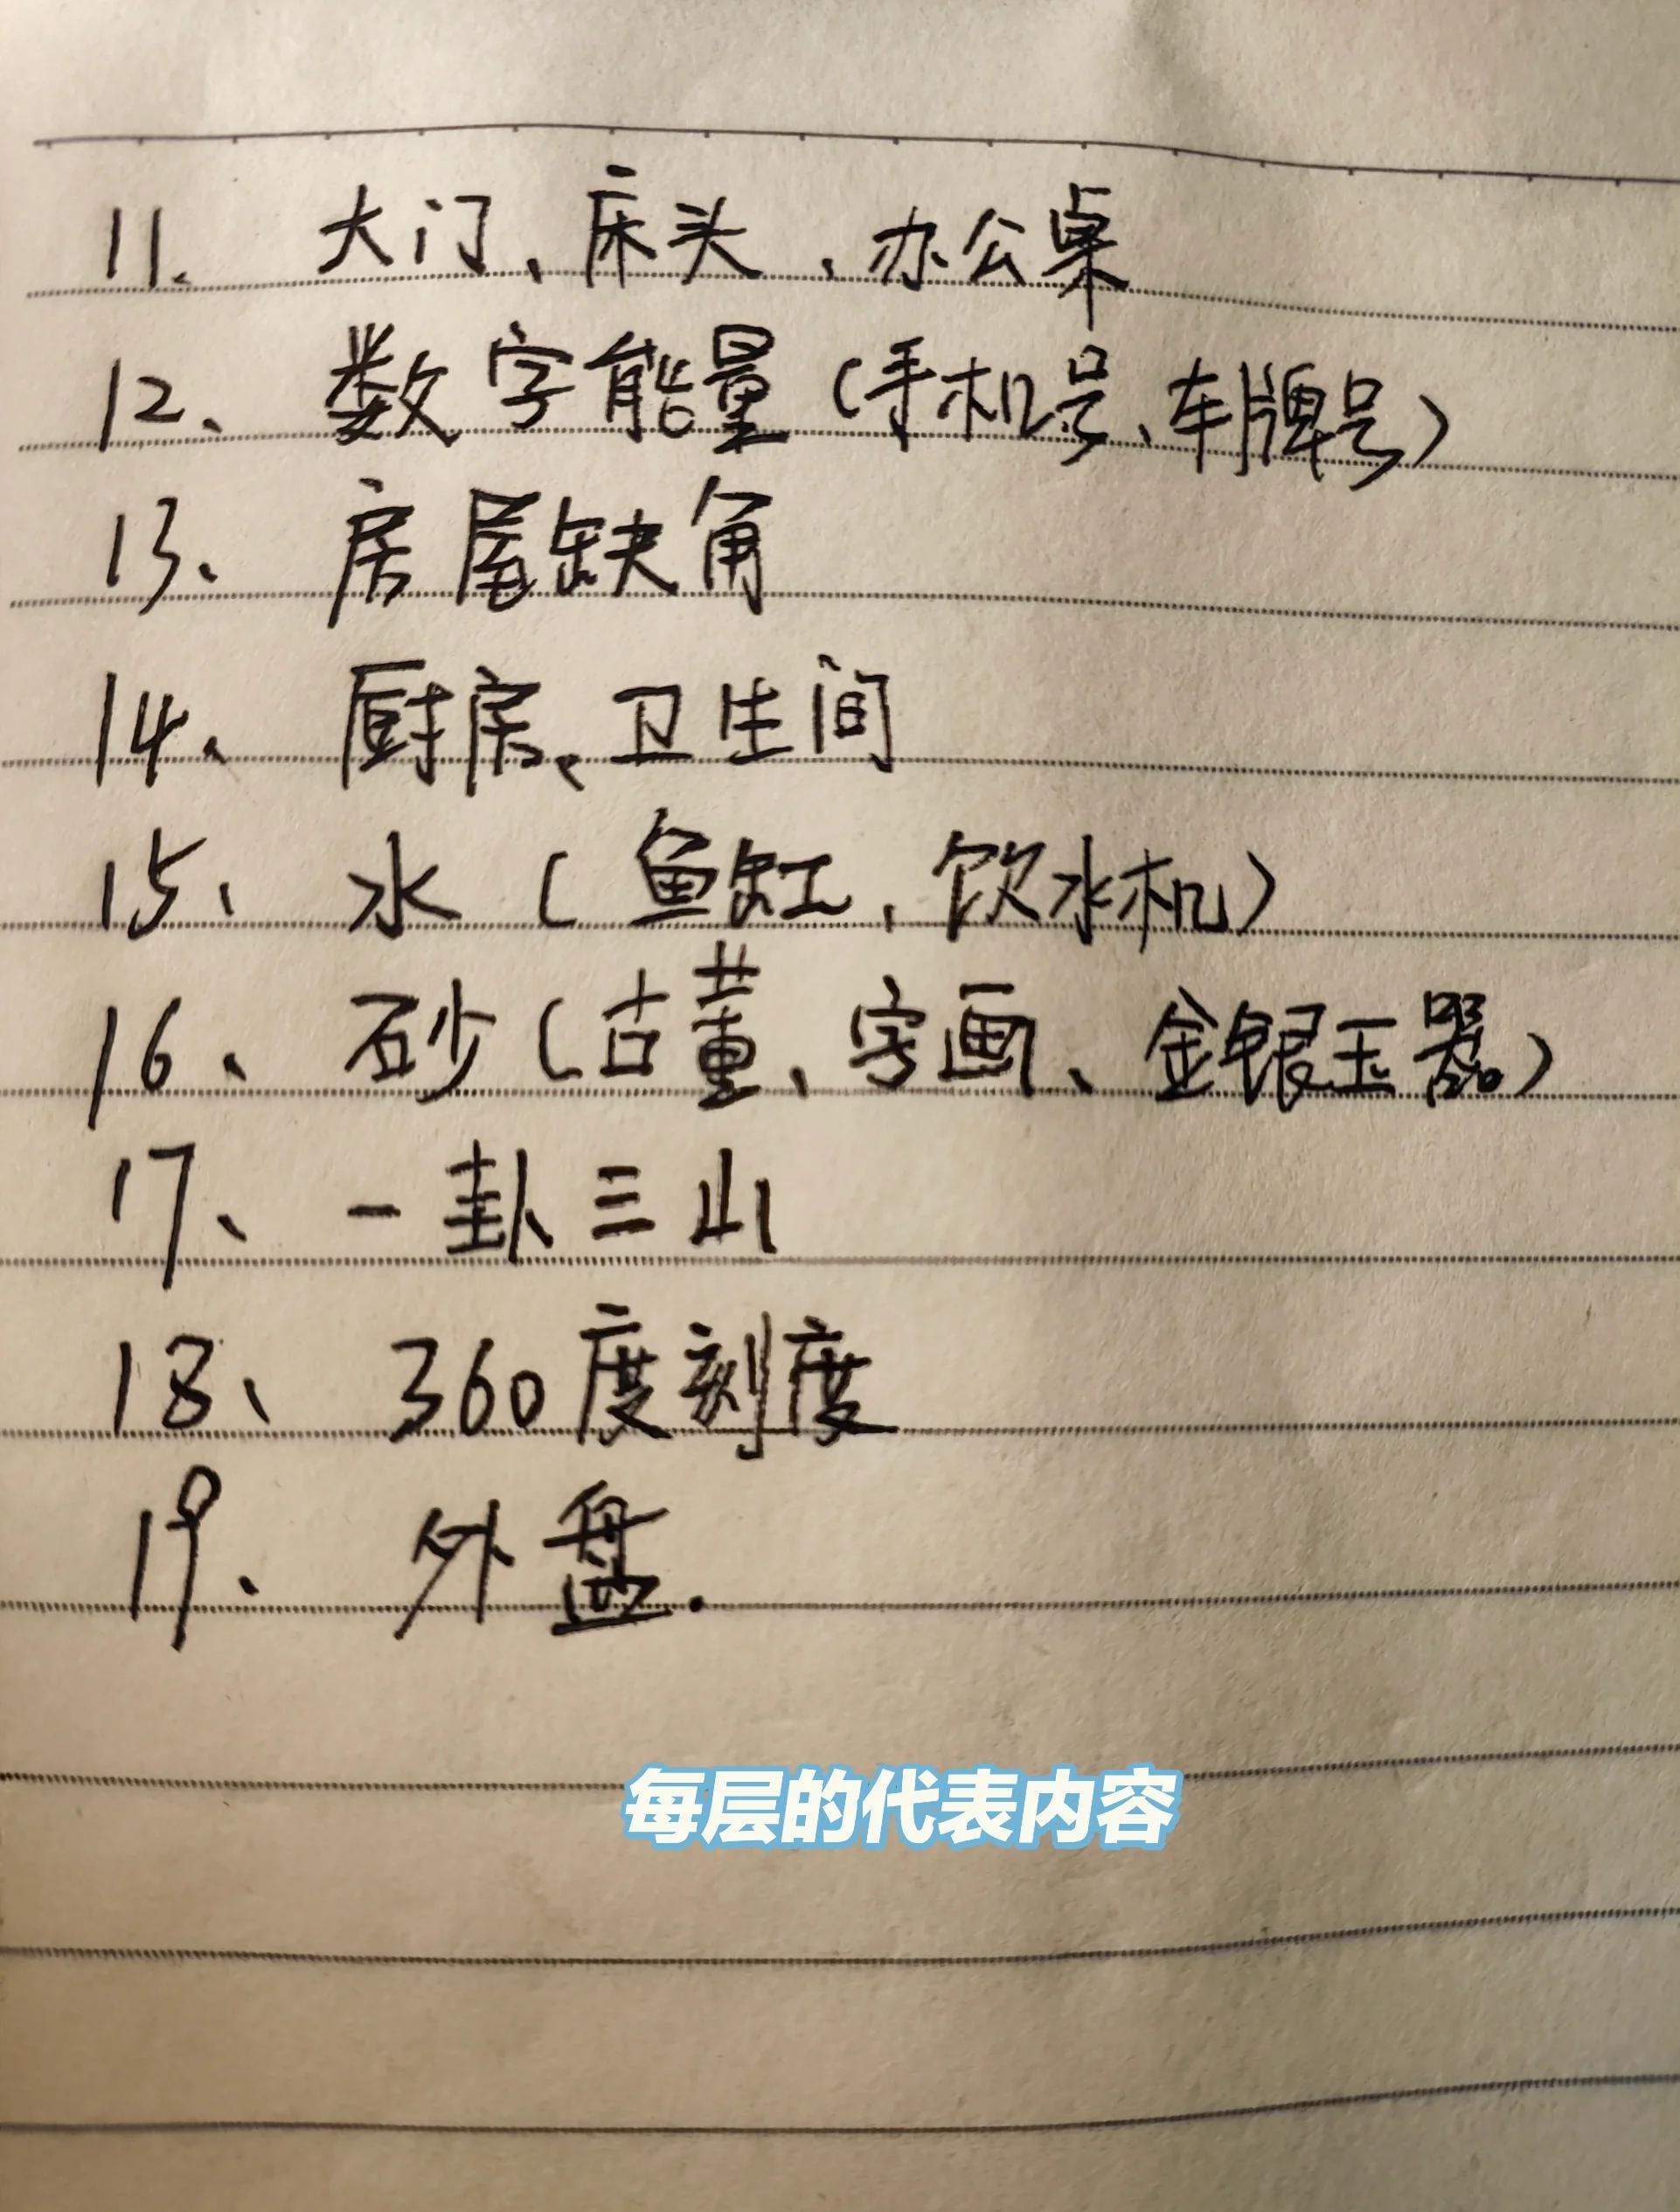 11、大门、床头、办公桌
12、数字能量(手机号、车牌号)
13、房屋缺角
14、厨房、卫生间
15、水(鱼缸、饮水机)
16、砂(古董、字画、金银玉器)
17、一卦三山
18、360度刻度
19、外盘.
每层的代表内容